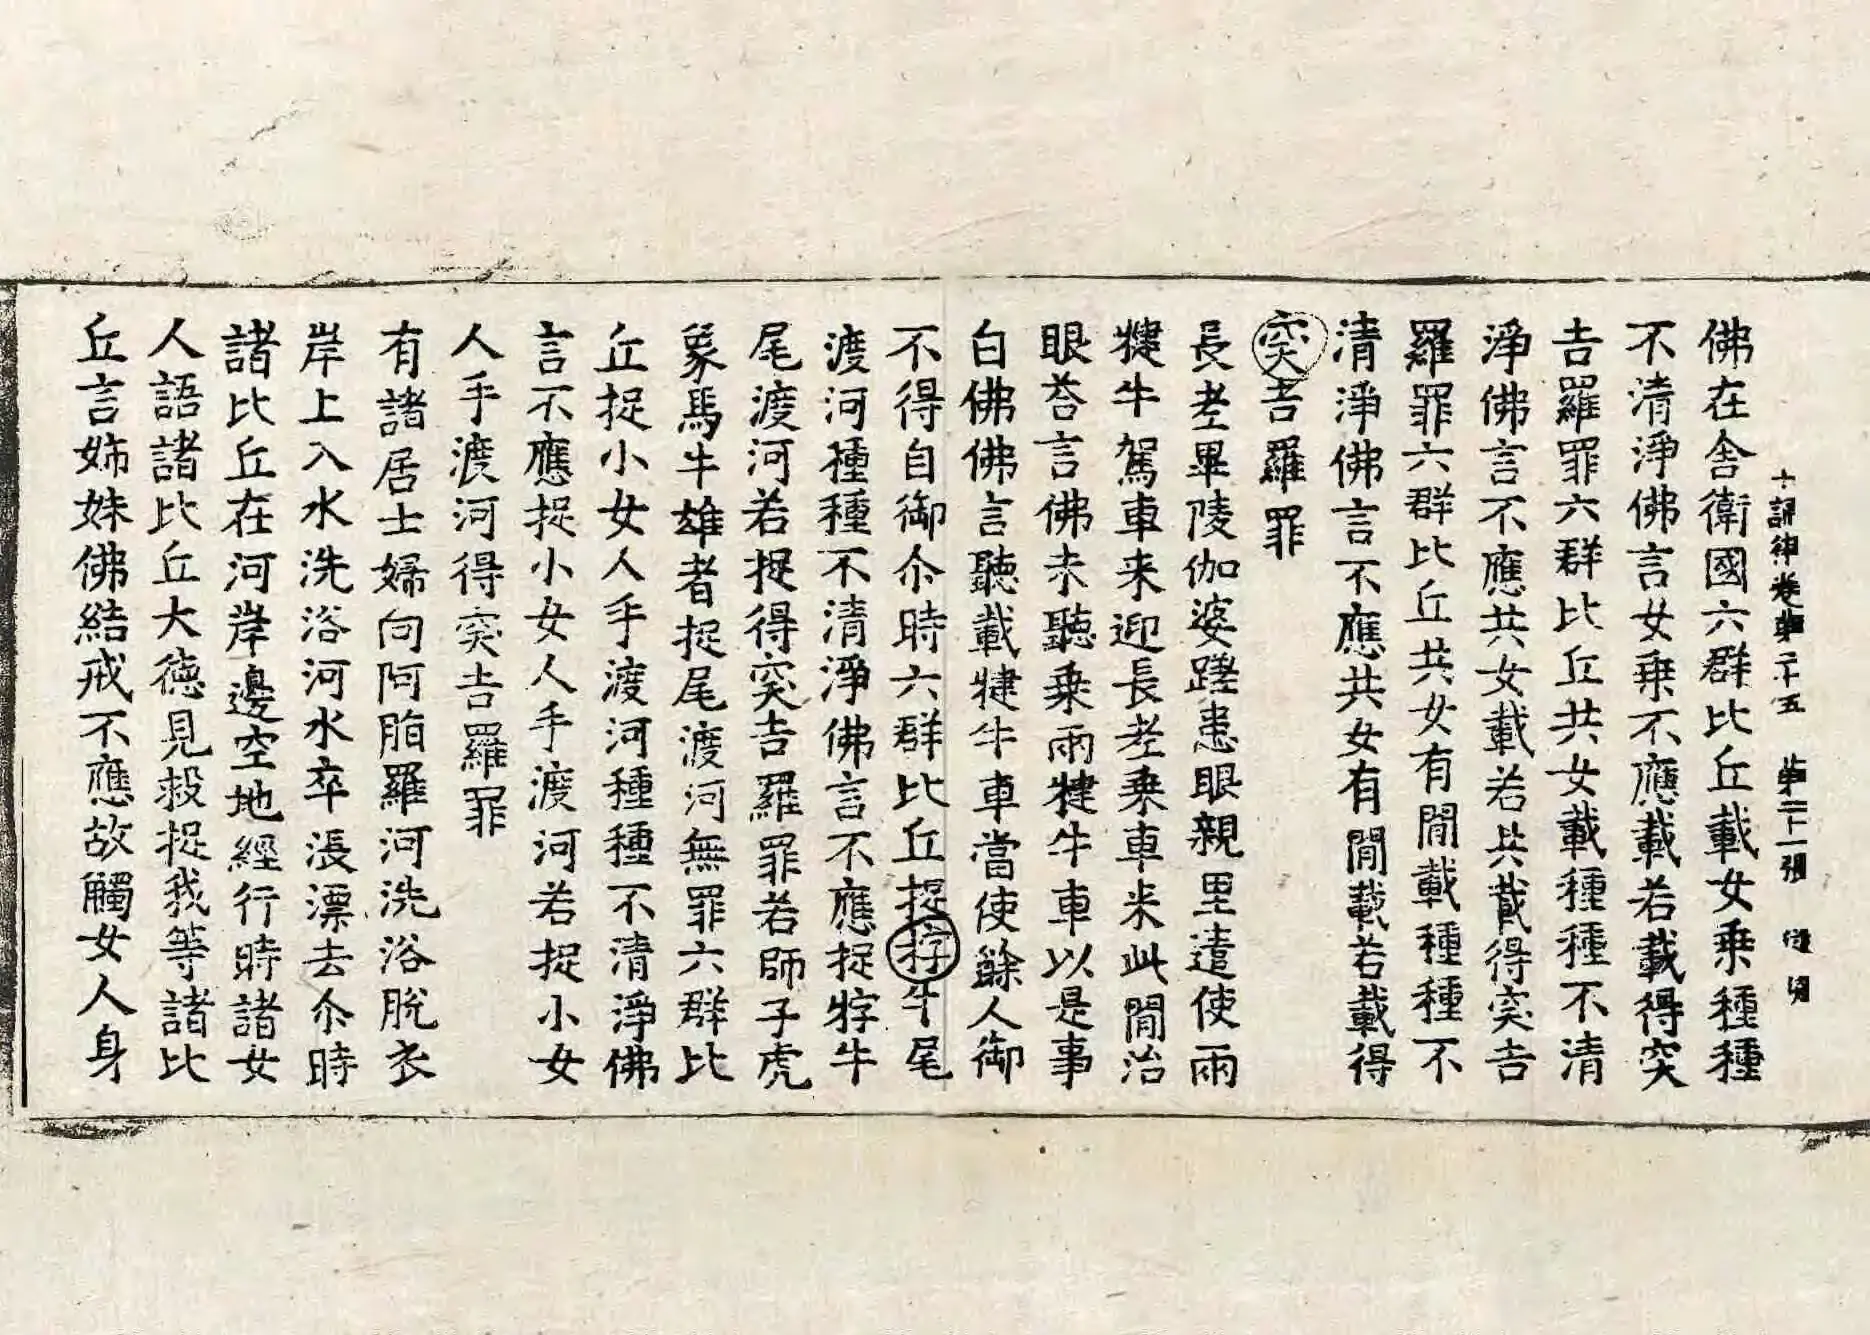 十誦律卷第二十五　第二十一張　隨　頌
佛在舍衛國六群比丘載女乘種種
不清淨佛言女乘不應載若載得突
吉羅罪六群比丘共女載種種不清
淨佛言不應共女載若共載得突吉
羅罪六群比丘共女有閒載種種不
清淨佛言不應共女有閒載若載得
突吉羅罪
長老畢陵伽婆蹉患眼親里遣使兩
犍牛駕車来迎長老乗車来此閒治
眼荅言佛未聽乗兩犍牛車以是事
白佛佛言聽載犍牛車當使餘人御
不得自御尒時六群比丘捉牸牛尾
渡河種種不清淨佛言不應捉牸牛
尾渡河若捉得突吉羅罪若師子虎
象馬牛雄者捉尾渡河無罪六群比
丘捉小女人手渡河種種不清淨佛
言不應捉小女人手渡河若捉小女
人手渡河得突吉羅罪
有諸居士婦向阿脂羅河洗浴脫衣
岸上入水洗浴河水卒漲漂去尒時
諸比丘在河岸邊空地經行時諸女
人語諸比丘大德見救捉我等諸比
丘言姊妹佛結戒不應故觸女人身